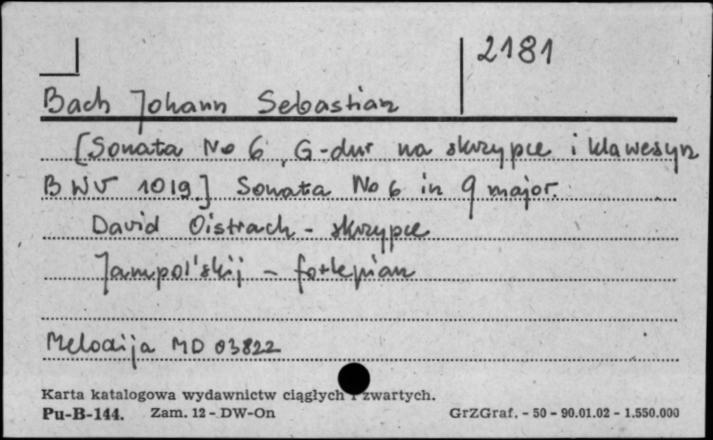 2181
Bach Johann Sebastian
[Sonata No 6, G-dur na skrzypce i klawesyn
BWV 1019] Sonata No 6 in G major.
David Oistrach - skrzypce
Jampol'skij - fortepian
Melodija MD 03822
Karta katalogowa wydawnictw ciągłych i zwartych.
Pu-B-144. Zam. 12 - DW-On GrZGraf. - 50 - 90.01.02 - 1.550.000